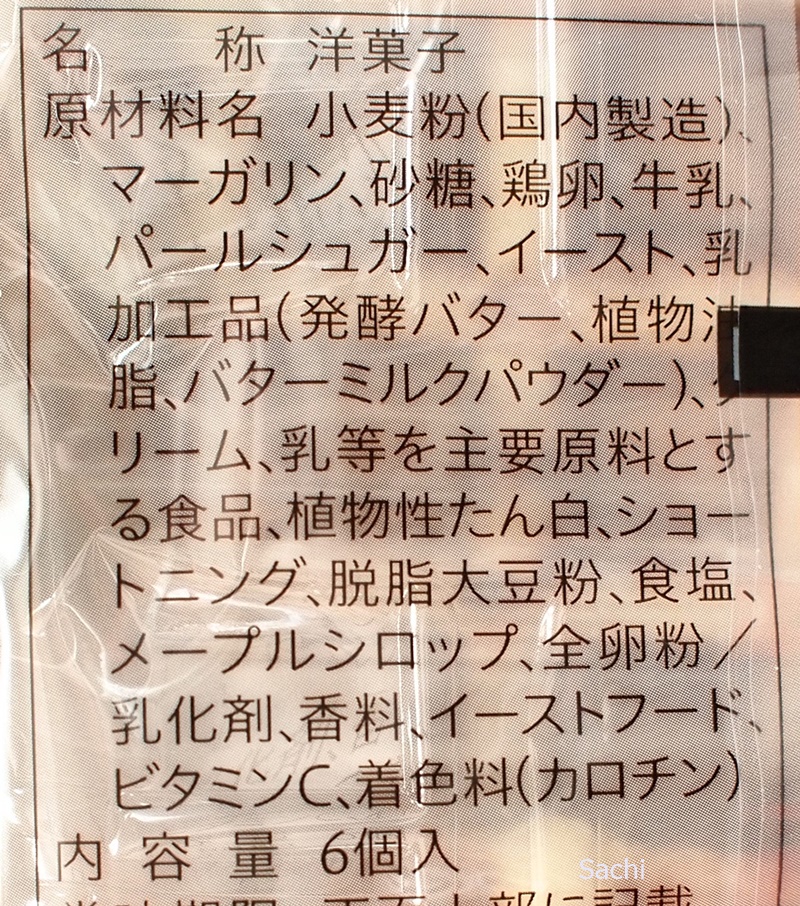 名 称 洋菓子
原材料名 小麦粉(国内製造)、
マーガリン、砂糖、鶏卵、牛乳、
パールシュガー、イースト、乳
加工品(発酵バター、植物油
脂、バターミルクパウダー)、ク
リーム、乳等を主要原料とす
る食品、植物性たん白、ショー
トニング、脱脂大豆粉、食塩、
メープルシロップ、全卵粉／
乳化剤、香料、イーストフード、
ビタミンC、着色料(カロチン)
内容量 6個入
Sachi